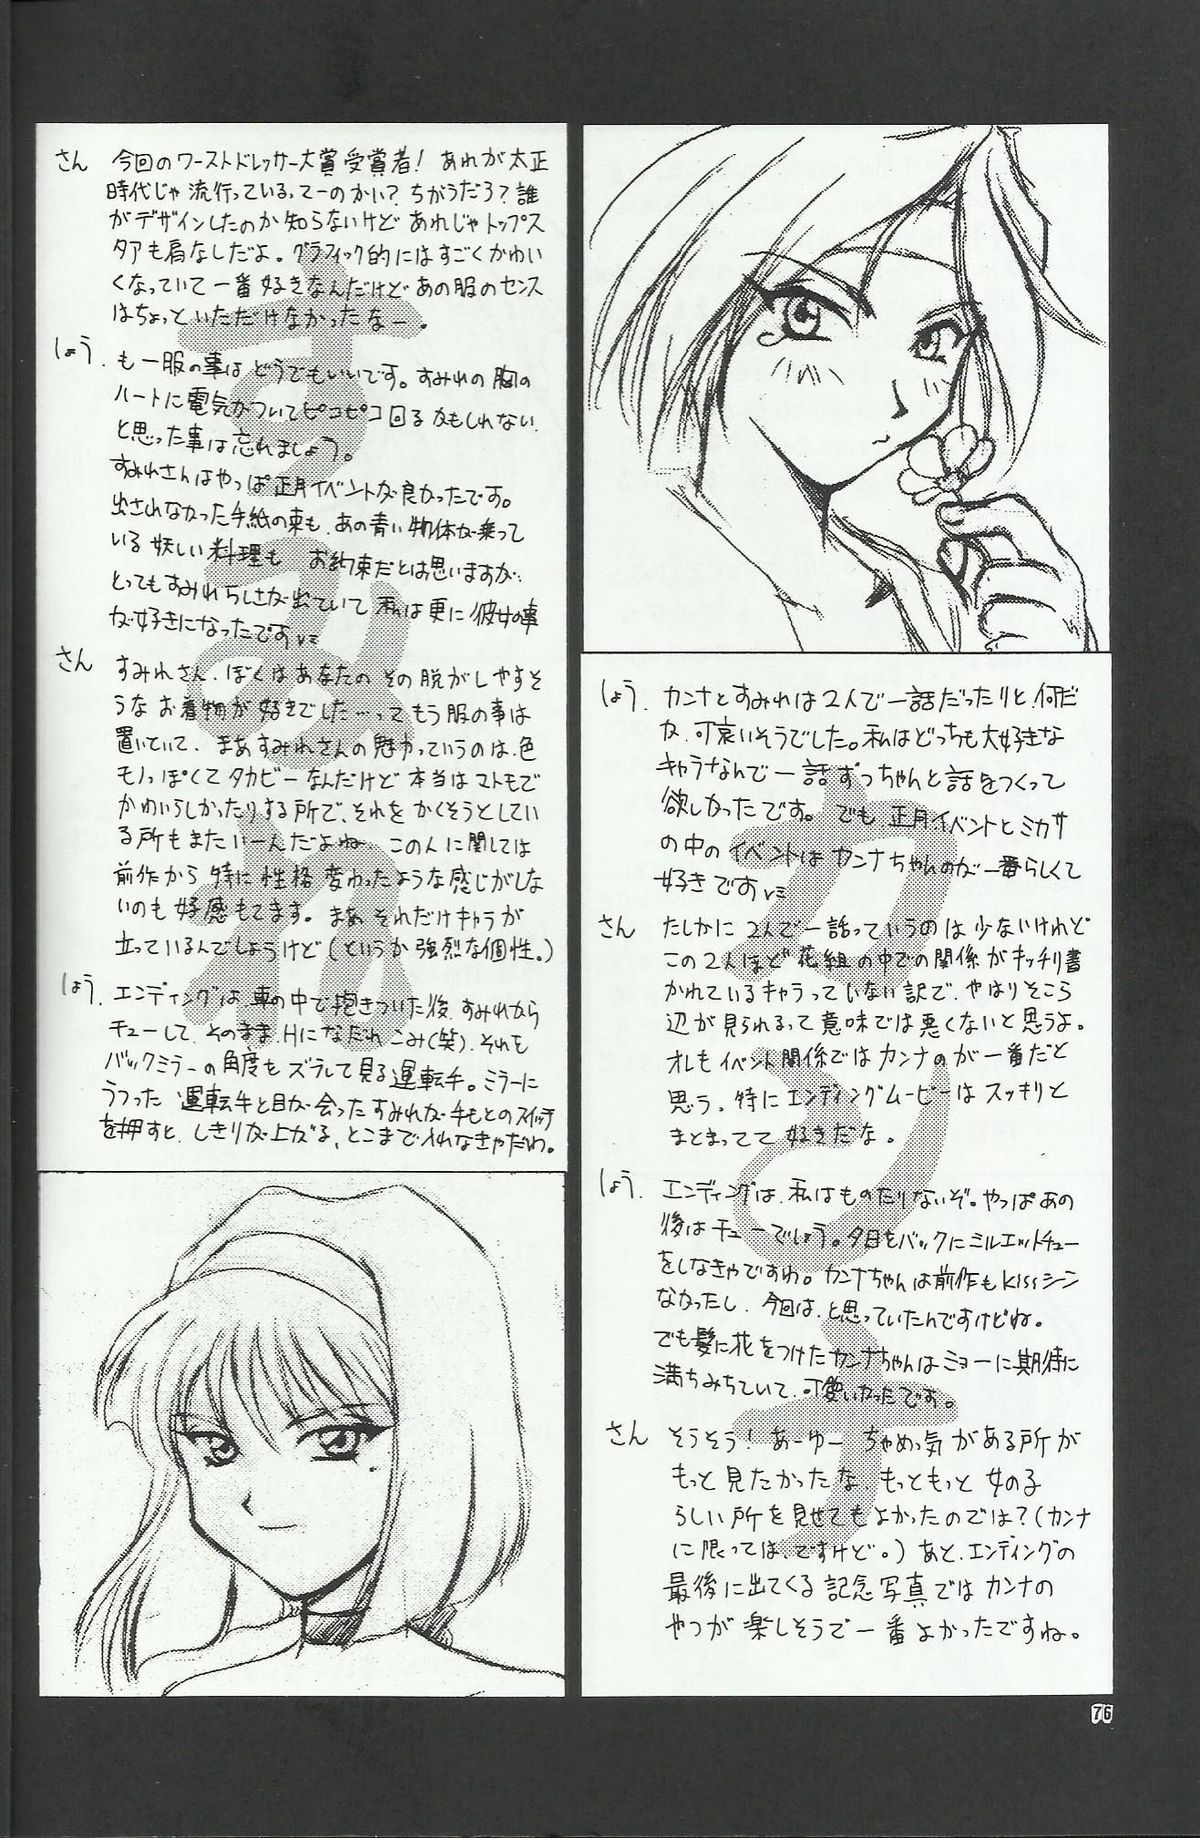 さん 今回のワーストドレッサー大賞受賞者! あれが太正
時代じゃ流行っている,てーのかい? ちがうだろ? 誰
がデザインしたのか知らないけどあれじゃトップス
タアも肩なしだよ。グラフィック的にはすごくかわい
くなっていて一番好きなんだけどあの服のセンス
はちょっといただけなかったなー。
しょう. も一服の事はどうでもいいです。すみれの胸の
ハートに電気がついてピコピコ回るかもしれない
と思った事は忘れましょう。
すみれさんはやっぱ正月イベントが良かったです。
出されなかった手紙の束も、あの青い物体が乗って
いる妖しい料理も お約束だとは思いますが、
とってもすみれらしさが出ていて私は更に彼女の事
が好きになったです
さん すみれさん、ぼくはあなたのその脱がしやすそ
うなお着物が好きでした…ってもう服の事は
置いていて、まあすみれさんの魅力っていうのは、色
モノっぽくてタカビーなんだけど本当はマトモで
かわいらしかったりする所で、それをかくそうとしてい
る所もまたいーんだよね この人に関しては
前作から特に性格変わったような感じがしな
いのも好感もてます。まあそれだけキャラが
立っているんでしょうけど(というか強烈な個性。)
しょう. エンディングは、車の中で抱きついた後、すみれから
チューして、そのままHになだれこみ(笑).それを
バックミラーの角度をズラして見る運転手。ミラーに
うつった運転手と目が会ったすみれが手もとのスイッチ
を押すと、しきりが上がる、とこまで入れなきゃだわ。
しょう. カンナとすみれは2人で一話だったりと、何だ
か、可哀いそうでした。私はどっちも大好きな
キャラなんで一話ずっちゃんと話をつくって
欲しかったです。でも正月イベントとミカサ
の中のイベントはカンナちゃんのが一番らしくて
好きです
さん たしかに2人で一話っていうのは少ないけれど
この2人ほど花組の中での関係がキッチリ書
かれているキャラっていない訳で、やはりそこら
辺が見られるって意味では悪くないと思うよ。
オレもイベント関係ではカンナのが一番だと
思う。特にエンディングムービーはスッキリと
まとまってて好きだな。
しょう. エンディングは、私はものたりないぞ。やっぱあの
後はチューでしょう。夕日をバックにミルエットチュー
をしなきゃですわ。カンナちゃんは前作もkissシーン
なかったし、今回は、と思っていたんですけどね。
でも髪に花をつけたカンナちゃんはミョーに期待に
満ちみちていて、可愛いかったです。
さん そうそう! あーゆー ちゃめっ気がある所が
もっと見たかったな もっともっと女の子
らしい所を見せてもよかったのでは?(カンナ
に限っては、ですけど。) あと、エンディングの
最後に出てくる記念写真ではカンナの
やつが楽しそうで一番よかったですね。
76